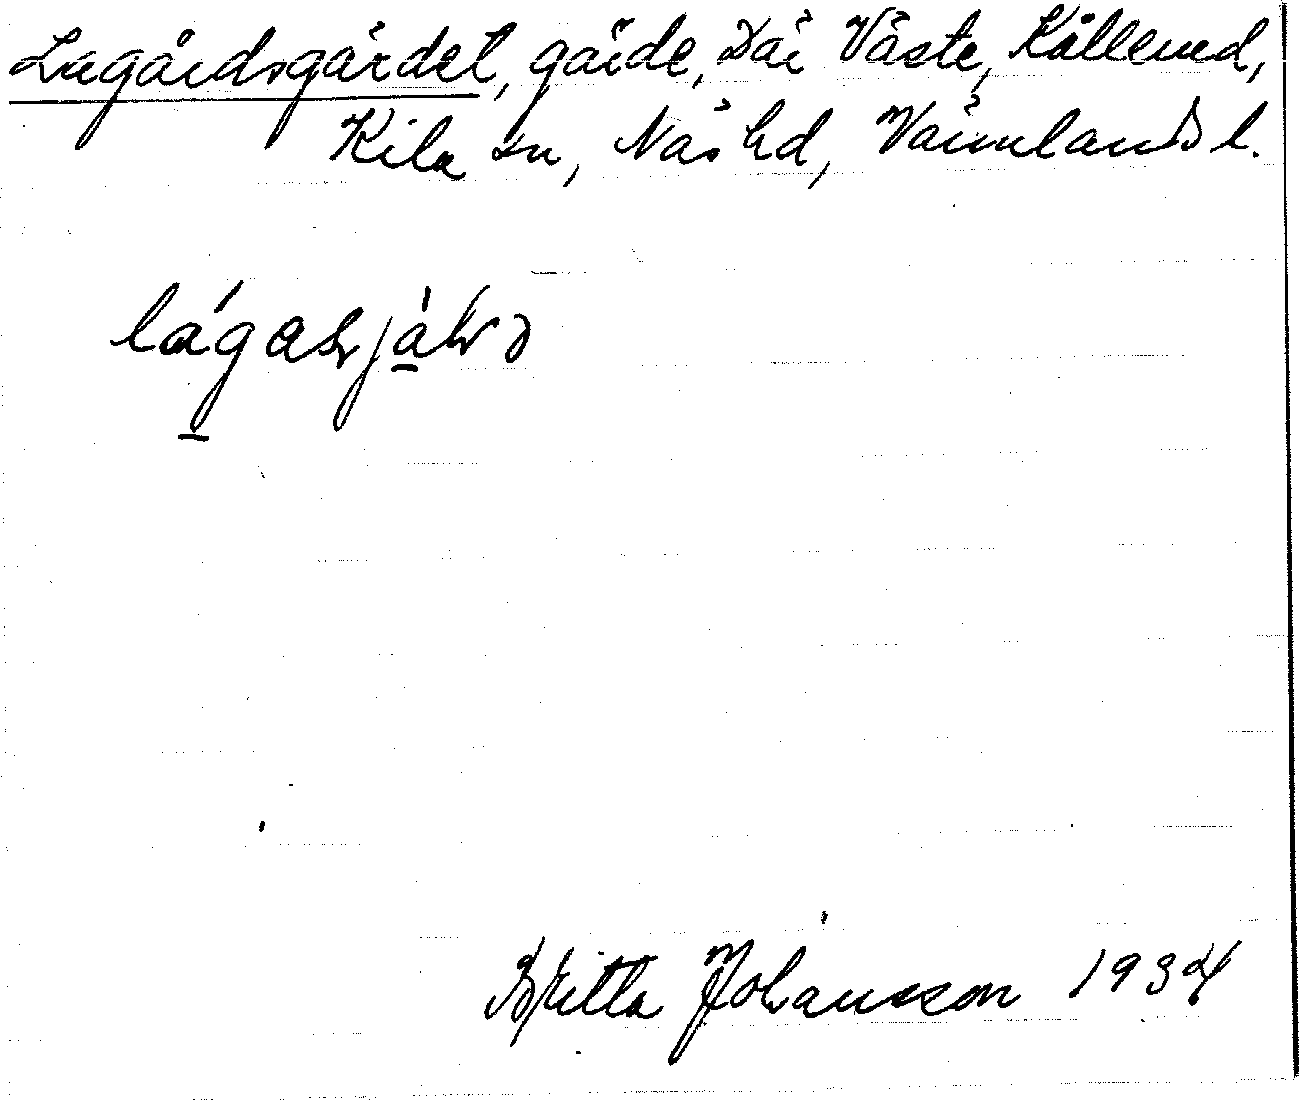 Lagårdsgärdet, gärde, Där Väste, Kållerud,
Kila sn, Näs hd, Värmlands l.
Britta Johansson 1934